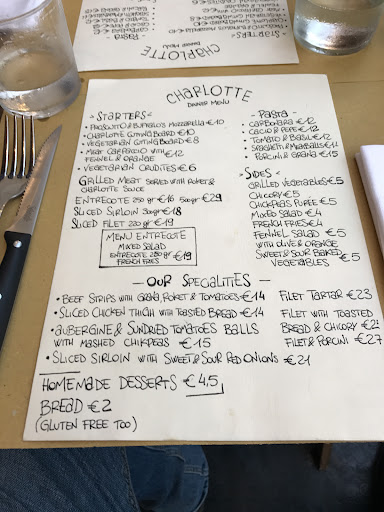 CHARLOTTE
DINNER MENU
STARTERS
• PROSCIUTTO & BUFFALO'S MOZZARELLA €10
• CHARLOTTE CUTTING BOARD €10
• VEGETARIAN CUTTING BOARD €8
• MEAT CARPACCIO WITH €12
FENNEL & ORANGE
• VEGETARIAN CRUDITÉS €6
GRILLED MEAT SERVED WITH ROKET &
CHARLOTTE SAUCE
ENTRECOTE 250 gr €16 500 gr €29
SLICED SIRLOIN 300gr €18
SLICED FILET 220 gr €19
MENU ENTRECOTE
MIXED SALAD
ENTRECOTE 250 gr €19
FRENCH FRIES
- PASTA -
• CARBONARA €12
• CACIO & PEPE €12
• TOMATO & BASIL €12
• SPAGHETTI & MEATBALLS €11
• PORCINI & GRANA €15
SIDES
GRILLED VEGETABLES €5
CHICORY €5
CHICKPEAS PUREE €5
MIXED SALAD €4
FRENCH FRIES €4
FENNEL SALAD €5
WITH OLIVE & ORANGE
SWEET & SOUR BAKED
VEGETABLES €5
- OUR SPECIALITIES -
• BEEF STRIPS WITH GRANA, ROKET & TOMATOES €14
• SLICED CHICKEN THIGH WITH TOASTED BREAD €14
• AUBERGINE & SUNDRIED TOMATOES BALLS
WITH MASHED CHICKPEAS €15
• SLICED SIRLOIN WITH SWEET & SOUR RED ONIONS €21
FILET TARTAR €23
FILET WITH TOASTED
BREAD & CHICORY €25
FILET & PORCINI €27
HOMENADE DESSERTS €4,5
BREAD €2
(GLUTEN FREE TOO)
CHARLOTTE
DINNER MENU
STARTERS
PASTA